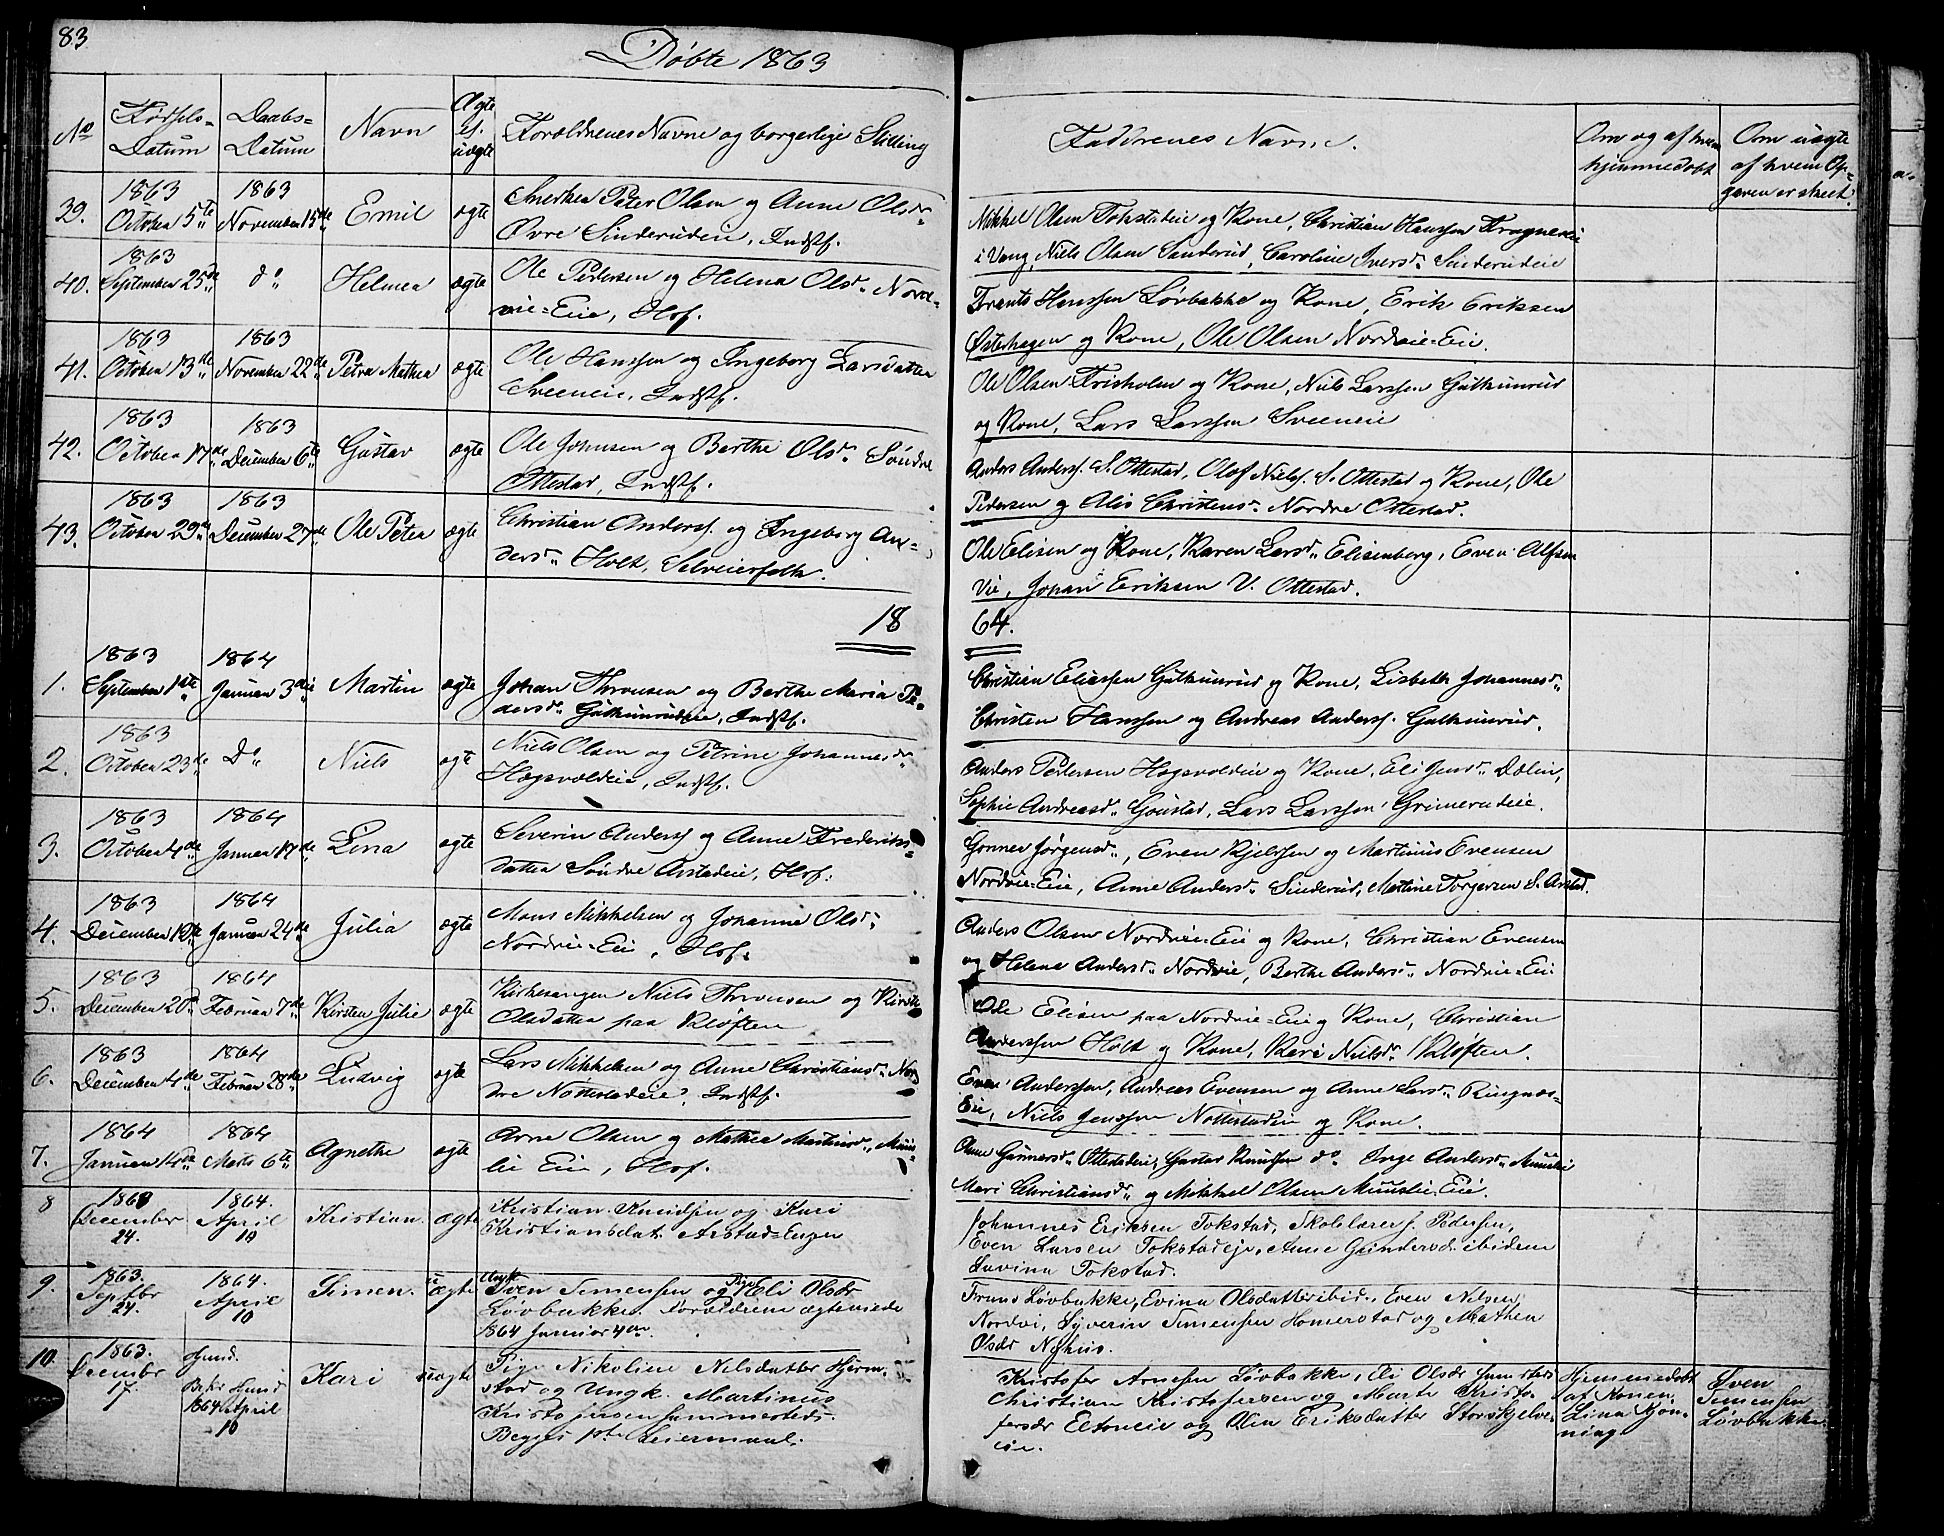 83
Döbte 1863
No
Födsels-
Datum
Daabs-
Datum
Navn
Ægte
el.
uægte
Forældrenes Navne og borgerlige Stilling
Faddrenes Navne.
Om og af hvem
hjemmedøbt
Om uægte
af hvem Op-
gaven er skeet.
39.
1863
October 5te
1863
November 15de
Emil
ægte
Peter Olsen og Anne Olsdr
Øvre Sinderudeie, Indstf.
Mikkel Olsen Tokstadeie og Kone, Christian Hanssen Frognereie
i Vang, Niels Olsen Sinderud, Caroline Iversdr Sinderudeie
40.
1863
September 25de
do
Helmer
ægte
Ole Pedersen og Helena Olsdr Nord-
vie-Eie, Hof.
Frants Hanssen Løvbakke og Kone, Erik Eriksen
Østerhagen og Kone, Ole Olsen Nordvie-Eie.
41.
1863
October 13de
1863
November 22de
Petra Mathea
ægte
Ole Hanssen og Ingeborg Larsdatter
Sveeneie, Indstf.
Ole Olsen Frisholm og Kone, Niels Larssen Gulkunrud
og Kone, Lars Larssen Sveeneie
42.
1863
October 17de
1863
December 6te
Gustav
ægte
Ole Johnsen og Berthe Olsdr Søndre
Ottestad, Indstf.
Anders Anderss. S. Ottestad, Olof Nielss. S. Ottestad og Kone, Ole
Pedersen og Alis Christensdr Nordre Ottestad.
43.
1863
October 29de
1863
December 27de
Ole Peter
ægte
Christian Anderss. og Ingeborg An-
dersdr Holt, Selveierfolk.
Ole Elisen og Kone, Karen Larsdr Elisenberg, Even Alfsen
Vie, Johan Eriksen V. Ottestad.
18
64.
1.
1863
September 1ste
1864
Januar 3die
Martin
ægte
Johan Thronsen og Berthe Maria Pe-
dersdr Gulkunrudeie, Indstf.
Christian Eliassen Gulkunrud og Kone, Lisbeth Johannesdr
Christen Hanssen og Andreas Anderss. Gulkunrud.
2.
1863
October 23de
Do
Niels
ægte
Niels Olsen og Petrine Johannesdr
Hogsvoldeie, Indstf.
Anders Pedersen Hogsvoldeie og Kone, Eli Jensdr Dølin,
Sophie Andreasdr Goustad, Lars Larssen Grimerudeie.
3.
1863
October 4de
1864
Januar 17de
Lina
ægte
Severin Anderss. og Anne Frederiks-
datter Søndre Arstadeie, Hof.
Gonner Jørgensdr, Even Kjelssen og Martinus Evensen
Nordvie-Eie, Anne Andersdr Sinderud, Martine Torgersen S. Arstad.
4.
1863
December 12te
1864
Januar 24de
Julia
ægte
Mons Mikkelsen og Johanne Olsdr
Nordvie-Eie, Hof.
Anders Olsen Nordvie-Eie og Kone, Christian Evensen
og Helene Andersdr Nordvie, Berthe Andersdr Nordvie-Eie
5.
1863
December 20de
1864
Februar 7de
Kirsten Julie
ægte
Kirkesanger Niels Thronsen og Kirsti
Olsdatter paa Kløften
Ole Elisen paa Nordvie-Eie og Kone, Christian
Anderssen Holt og Kone, Kari Nielsdr Kløften.
6.
1863
December 4de
1864
Februar 28de
Ludvig
ægte
Lars Mikkelsen og Anne Christiansdr Nor-
dre Nottestadeie, Indstf.
Even Anderssen, Andreas Evensen og Anne Larsdr Ringnæs-
Eie, Niels Jenssen Nottestadeie og Kone.
7.
1864
Januar 14de
1864
Marts 6te
Agnethe
ægte
Arne Olsen og Mathea Martinusdr, Muus-
lie Eie, Hof.
Anne Gunnersdr Ottestadeie, Gustav Knutsen do Inge Andersdr Muuslie
Mari Christiansdr og Mikkel Olsen Muuslie-Eie.
8
1863
December
24.
1864.
April
10
Kristian.
ægte
Kristian Knudsen og Kari
Kristiansdat. Arstad-Engen
Johannes Eriksen Tokstad, Skolelærer J. Pedersen,
Even Larsen Tokstadeje, Anne Gundersd. ibidem
Lavina Tokstad.
9.
1863.
Septbr
24.
1864.
April
10
Simen.
uægte
Ungk
Sven Simensen og Pige Eli Olsdr
Løvbakke. Forældrene ægteviede
1864 Januar 4de.
Frans Løvbakke, Evina Olsdatter ibid., Even Nilsen
Nordvi, Syverin Simensen Homerstad og Mathea
Olsdr Nyhus.
10.
1863.
December
17.
Hjemd.
Bekr Hjemd
1864 April
10
Kari
uægte
Pige Nikoline Nilsdatter Hjerm-
stad og Ungk. Martinus
Kristofersen Jemmestad.
Begges 1ste Leiermaal.
Kristofer Arnesen Løvbakke, Eli Olsdr
Christian Kristofersen og Marte Kristo-
fersdr Eltoneie og Olia Eriksdatter Storskjelve-
eie.
Hjemmedøbt
af Konen
Lina Kjøn-
ning
Sven
Simensen
Løvbakke.